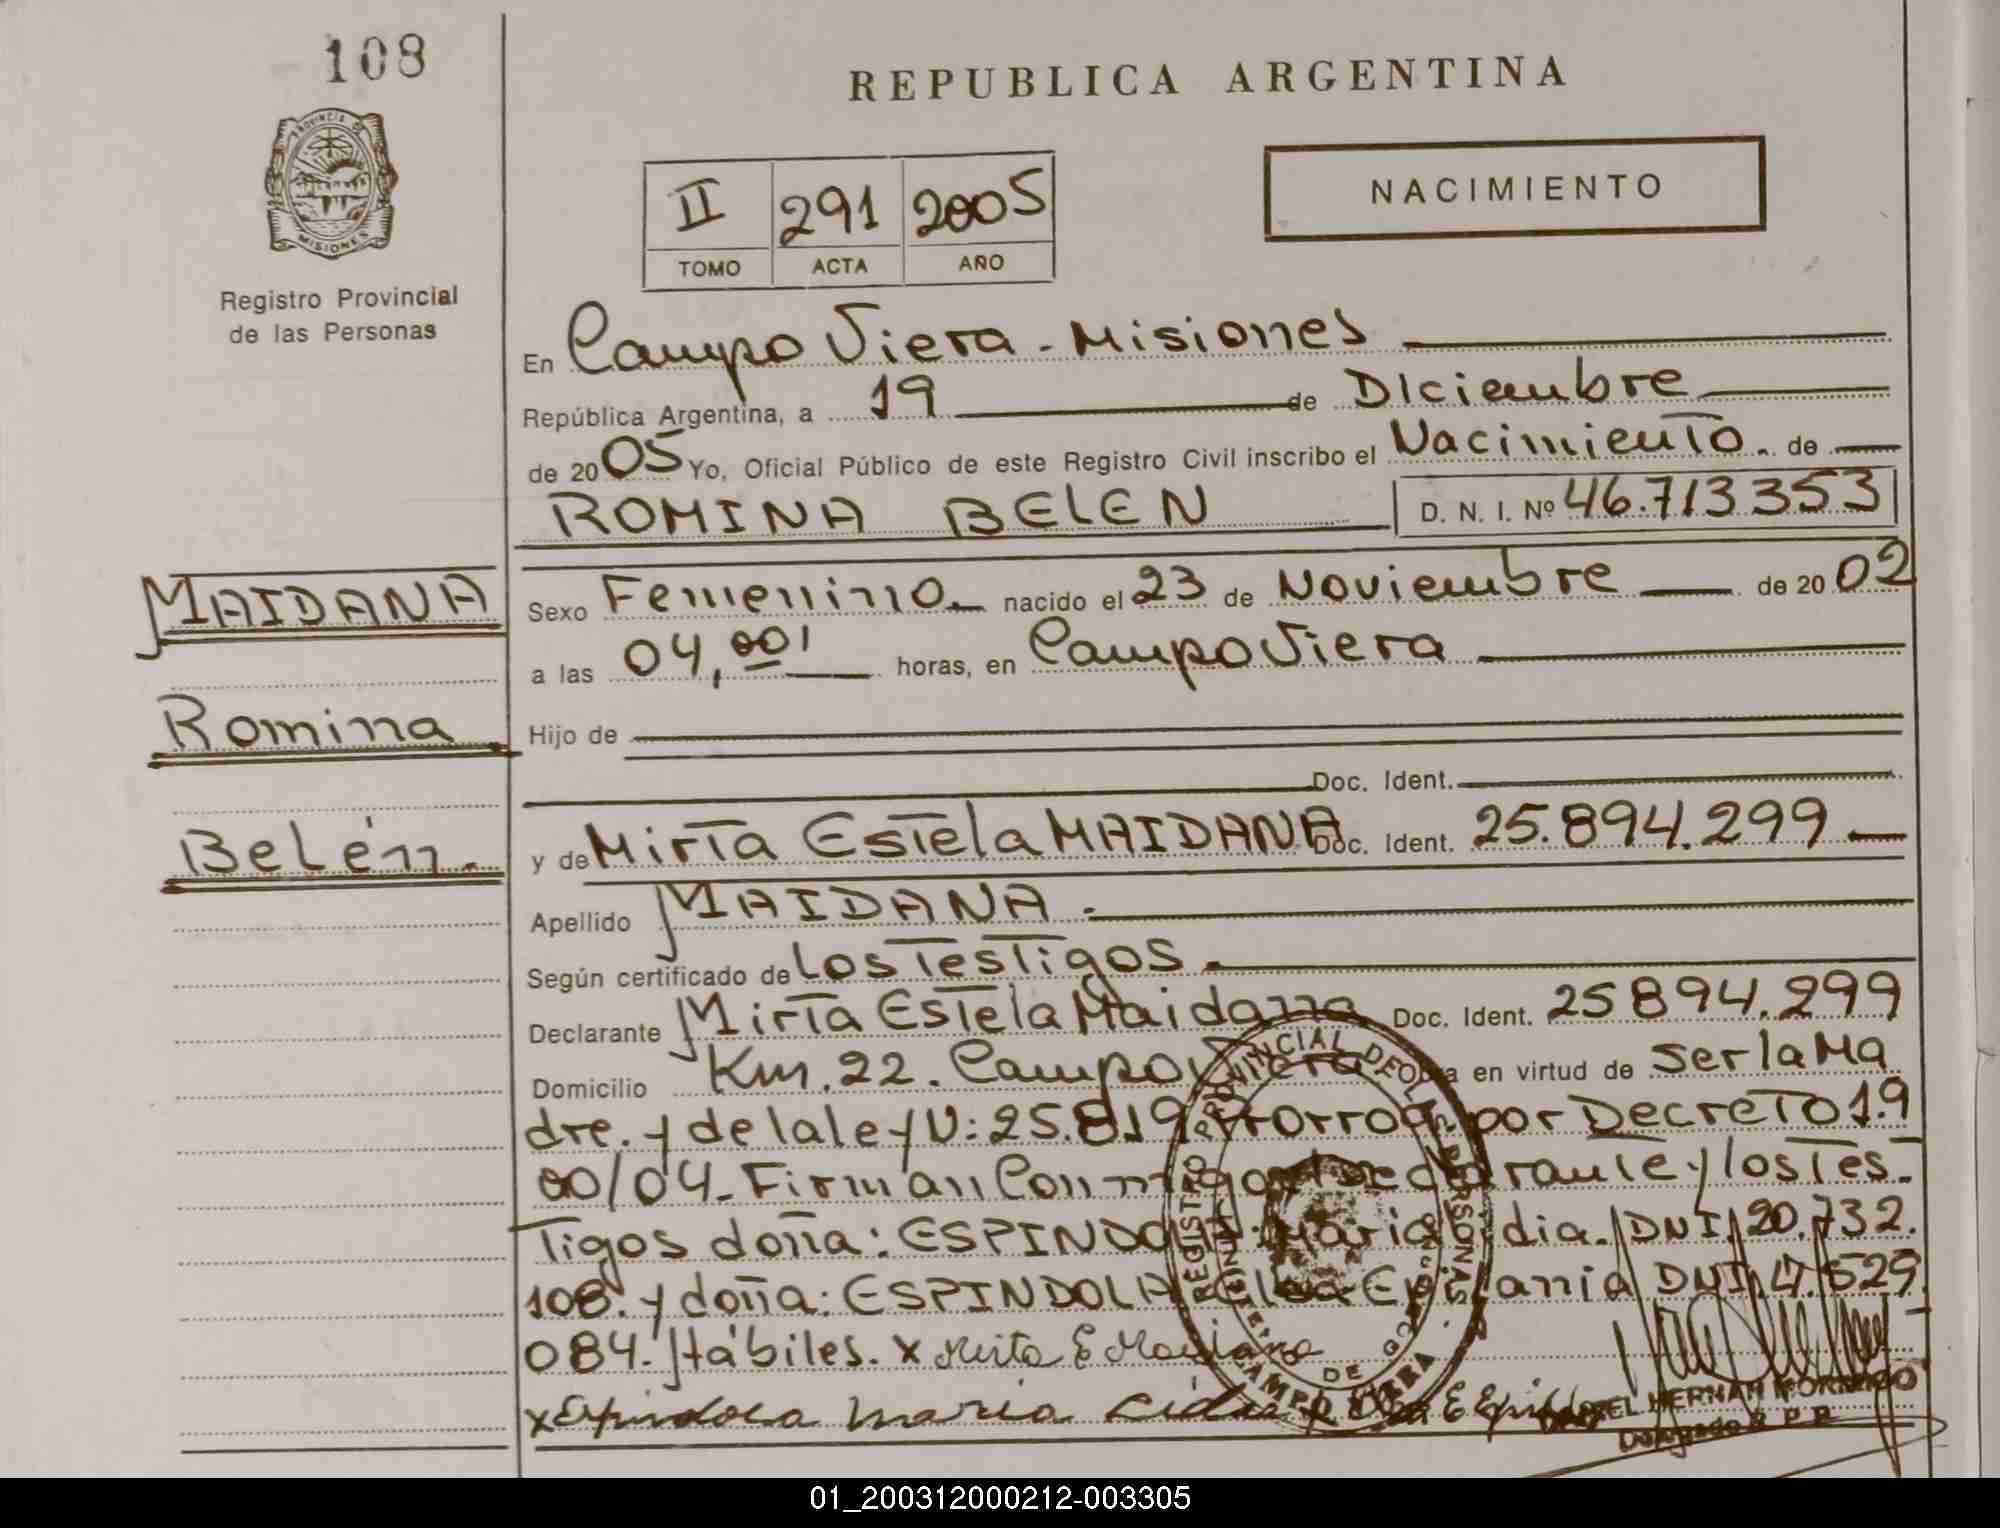 108
REPUBLICA ARGENTINA
PROVINCIA DE
MISIONES
NACIMIENTO
II 291 2005
TOMO ACTA AÑO
Registro Provincial
de las Personas
En Campo Viera - Misiones
República Argentina, a 19 de Diciembre
de 2005 Yo, Oficial Público de este Registro Civil inscribo el Nacimiento. de
ROMINA BELEN D. N. I. Nº 46.713.353
MAIDANA
Romina
Belén.
Sexo Femenino nacido el 23 de Noviembre de 2002
a las 04,00' horas, en Campo Viera
Hijo de
Doc. Ident.
y de Mirta Estela MAIDANA Doc. Ident. 25.894.299
Apellido MAIDANA.
Según certificado de Los Testigos.
Declarante Mirta Estela Maidana Doc. Ident. 25 894.299
Domicilio Km. 22. Campo Viera en virtud de ser la Ma
dre. y de la ley N: 25.819 Prorrog. por Decreto 1.9
00/04. Firman Conmigo Declarante y los Tes.
Tigos doña: ESPINDOLA: Maria Lidia. DNI. 20.732.
108. y doña: ESPINDOLA DNI. 17.529
084. Hábiles. x Mirta E Maidana
x Espindola Maria Lidia x
REGISTRO PROVINCIAL DE LAS PERSONAS
CAMPO VIERA
HERNAN
Delegado R P P
01_200312000212-003305